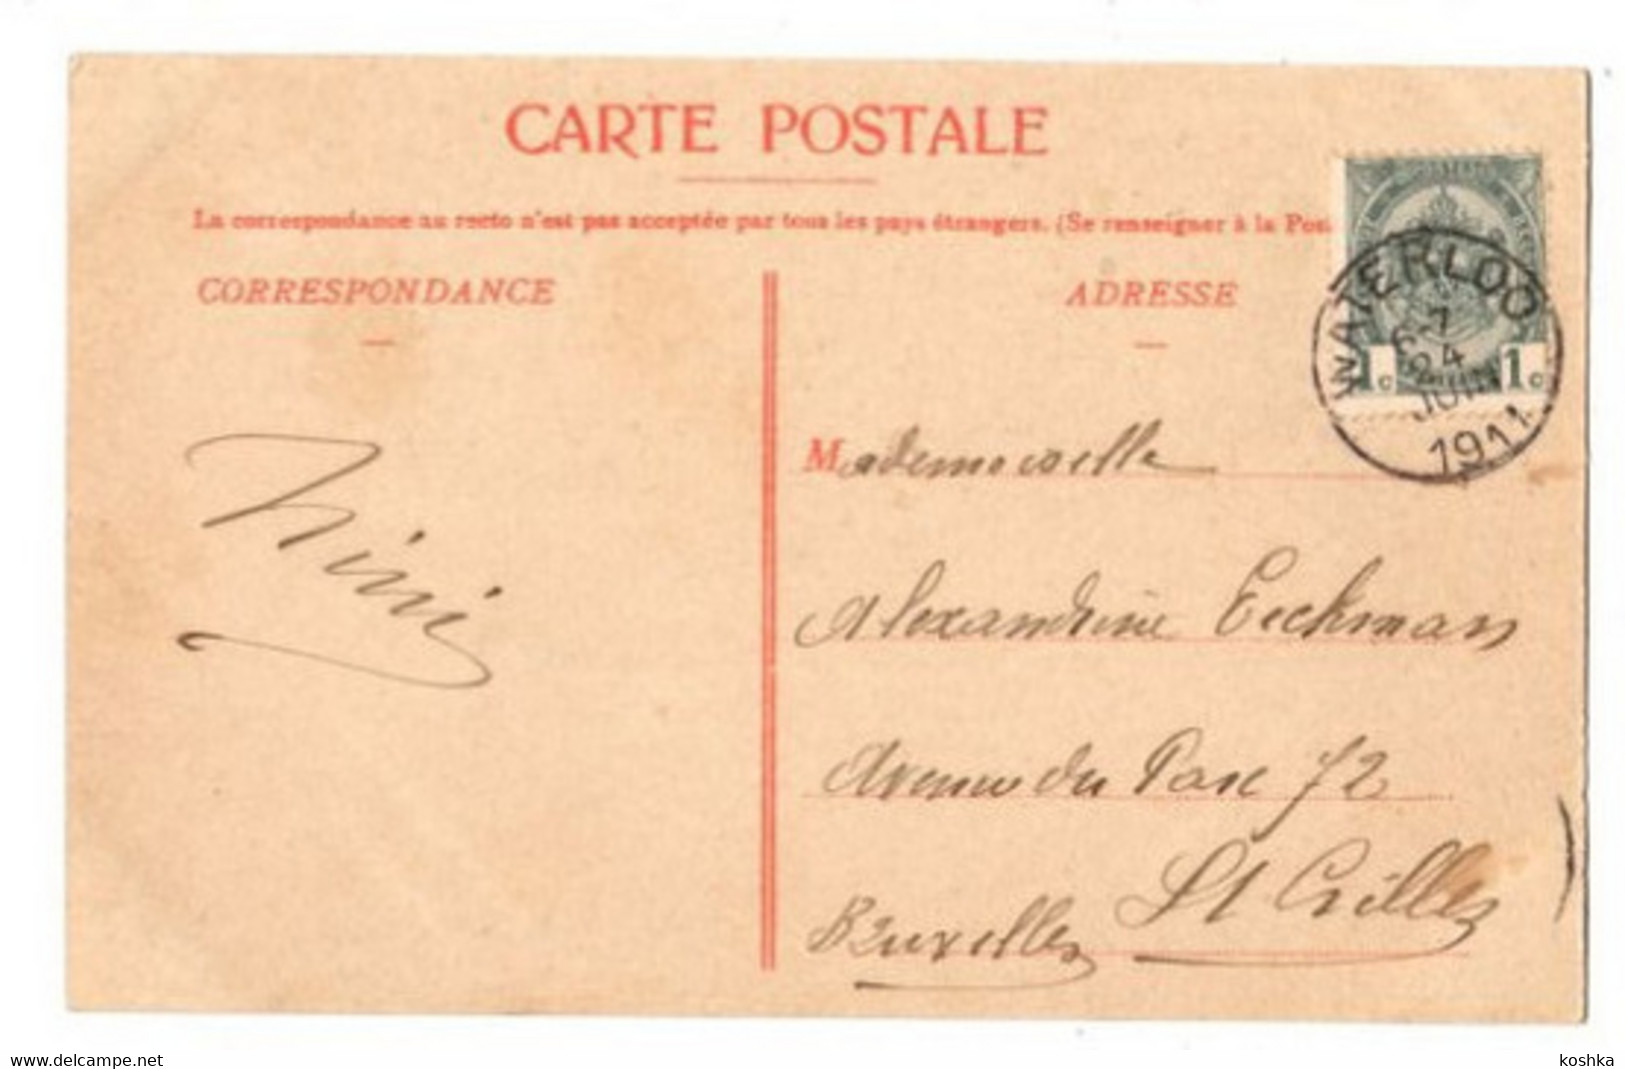 CARTE POSTALE
La correspondance au recto n'est pas acceptée par tous les pays étrangers. (Se renseigner à la Pos
CORRESPONDANCE
ADRESSE
WATERLOO
6-7
24
JUIN
1911
1c 1c
Nini
Mademoiselle
Alexandrine Eeckman
Avenue du Parc 72
St Gilles
Bruxelles
www.delcampe.net
koshka